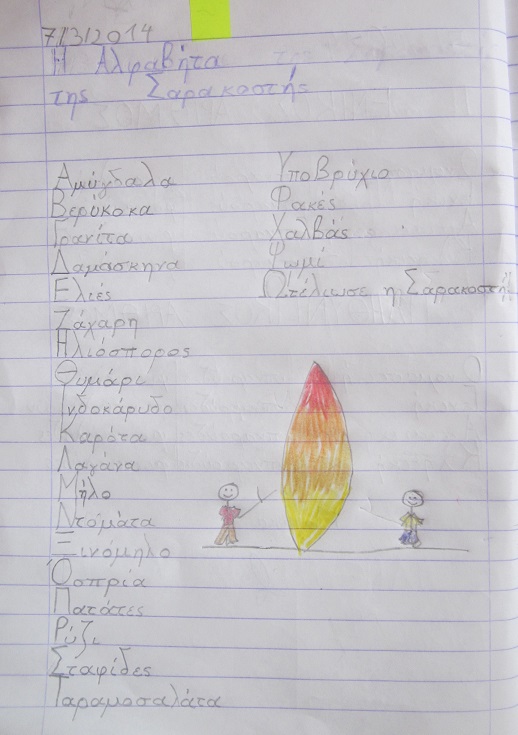 7/3/2014
Η Αλφαβήτα
της Σαρακοστής
Αμύγδαλα
Βερύκοκα
Γρανίτα
Δαμάσκηνα
Ελιές
Ζάχαρη
Ηλιόσπορος
Θυμάρι
Ινδοκάρυδο
Καρότα
Λαγάνα
Μήλο
Ντομάτα
Ξινόμηλο
Όσπρια
Πατάτες
Ρύζι
Σταφίδες
Ταραμοσαλάτα
Υποβρύχιο
Φακές
Χαλβάς
Ψωμί
Ωτέλιωσε η Σαρακοστή!